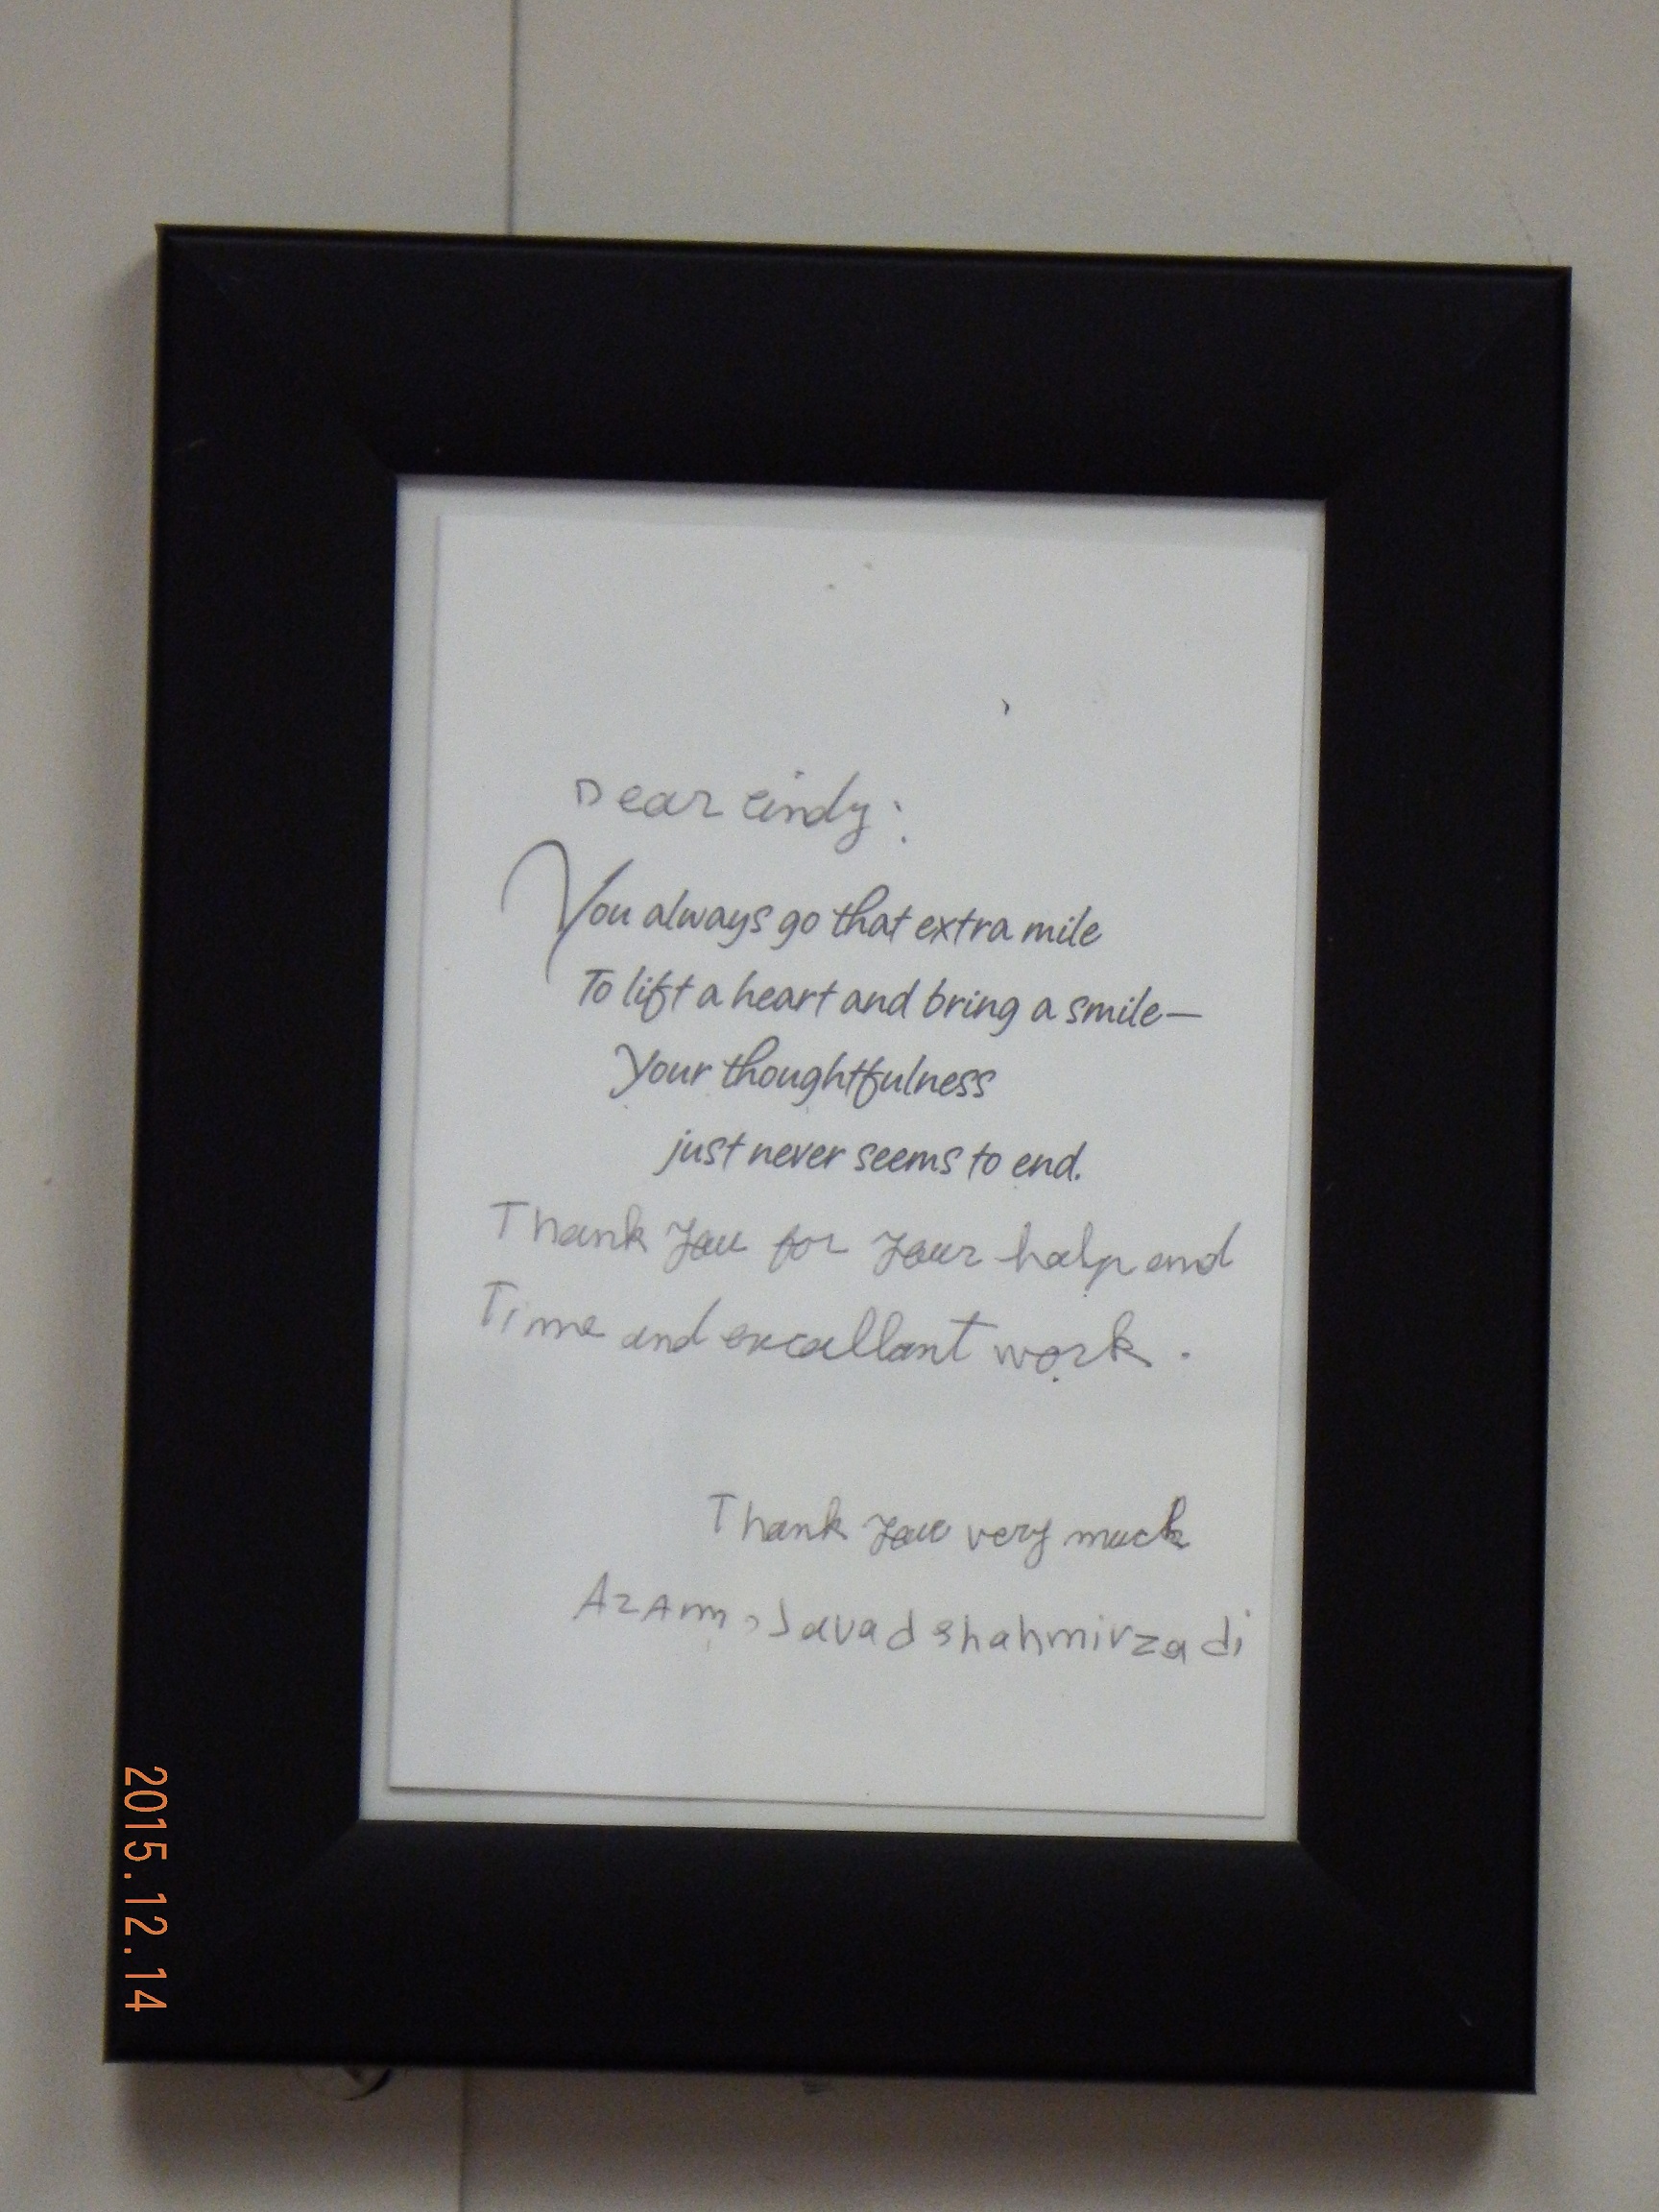 Dear Cindy:
You always go that extra mile
To lift a heart and bring a smile—
Your thoughtfulness
just never seems to end.
Thank you for your halp and
Time and excallant work.
Thank you very much
Azam, Javad shahmirzadi
2015.12.14